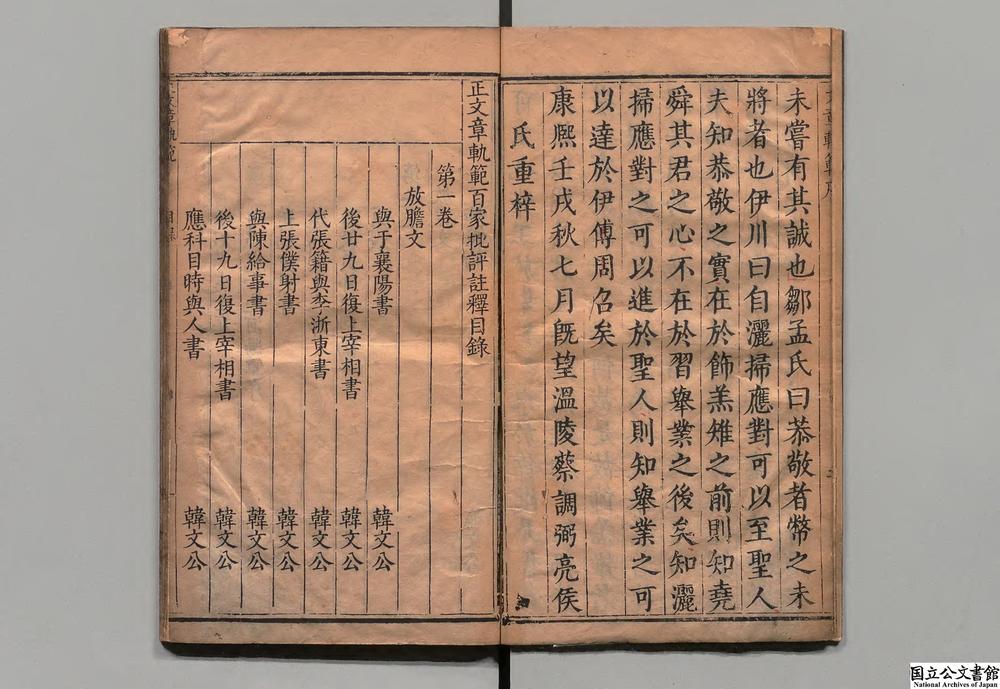 未嘗有其誠也鄒孟氏曰恭敬者幣之未
將者也伊川曰自灑掃應對可以至聖人
夫知恭敬之實在於飾羔雉之前則知堯
舜其君之心不在於習舉業之後矣知灑
掃應對之可以進於聖人則知舉業之可
以達於伊傅周召矣
康熈壬戌秋七月旣望溫陵蔡調弼亮侯
氏重梓
正文章軌範百家批評註釋目錄
第一卷
放膽文
與于襄陽書 韓文公
後廿九日復上宰相書 韓文公
代張籍與李浙東書 韓文公
上張僕射書 韓文公
與陳給事書 韓文公
後十九日復上宰相書 韓文公
應科目時與人書 韓文公
国立公文書館
National Archives of Japan